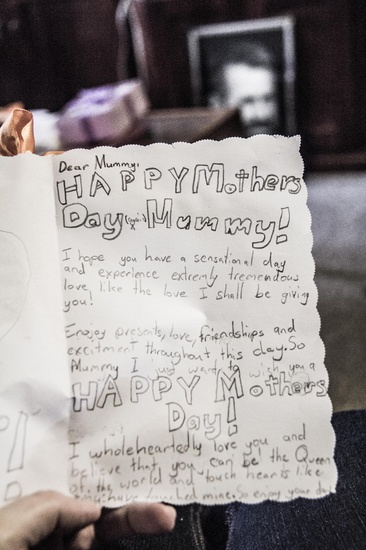 Dear Mummy,
HAPPY Mothers
Day (again) Mummy!
I hope you have a sensational day
and experience extremly tremendous
love, like the love I shall be giving
you!
Enjoy presents, love, friendships and
excitment throughout this day. So
Mummy I just want to wish you a
HAPPY Mothers
Day!
I wholeheartedly love you and
believe that you can be the Queen
of the world and touch hearts like
you have touched mine. So enjoy your day